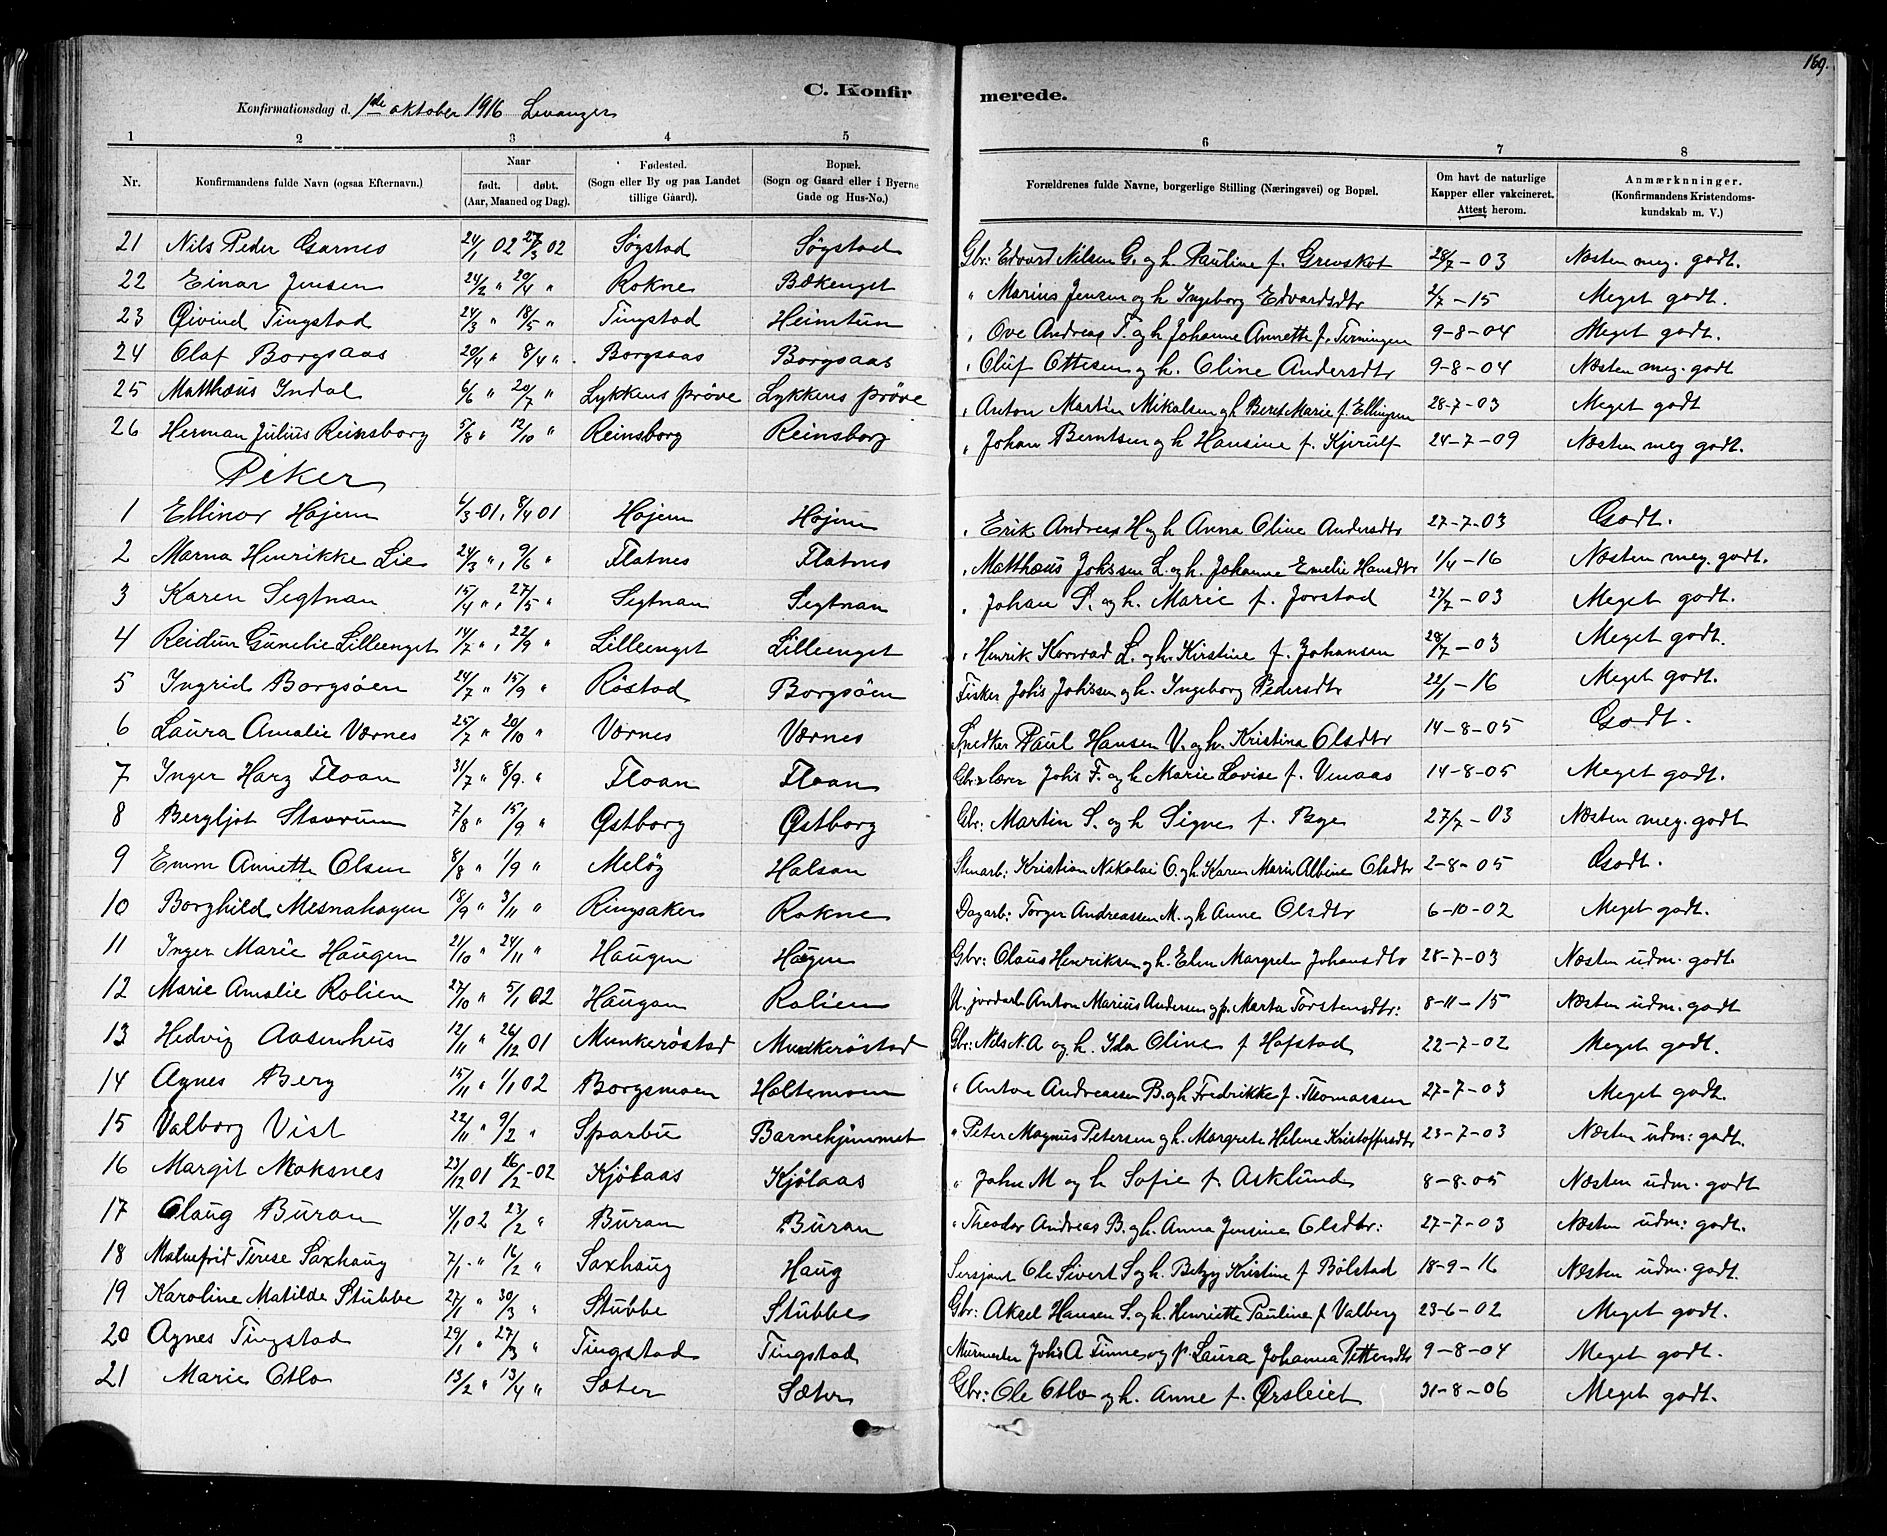 169.
C. Konfirmerede.
Konfirmationsdag d. 1ste oktober 1916 Levanger
1 2 3 4 5 6 7 8
Nr. Konfirmandens fulde Navn (ogsaa Efternavn.) Naar født. døbt. (Aar, Maaned og Dag). Fødested. (Sogn eller By og paa Landet tillige Gaard). Bopæl. (Sogn og Gaard eller i Byerne Gade og Hus-No.) Forældrenes fulde Navne, borgerlige Stilling (Næringsvei) og Bopæl. Om havt de naturlige Kapper eller vakcineret. Attest herom. Anmærknninger. (Konfirmandens Kristendomskundskab m. V.)
21 Nils Peder Garnes 24/1 02 27/3 02 Søgstad Søgstad Gbr: Edvard Nilsen G. og h. Pauline f. Grevskot 28/7 - 03 Næsten meg. godt.
22 Einar Jensen 24/2 " 20/4 " Rokne Bækenget " Marius Jensen og h Ingeborg Edvardsdtr 2/7 - 15 Meget godt.
23 Øivind Tingstad 24/3 " 18/5 " Tingstad Heimtun " Ove Andreas T. og h Johanne Annette f. Terningen 9-8-04 Meget godt.
24 Olaf Borgsaas 20/4 " 8/4 " Borgsaas Borgsaas " Oluf Ottesen og h. Oline Andersdtr 9-8-04 Næsten meg. godt
25 Matthæus Indal 6/6 " 20/7 " Lykkens prøve Lykkens prøve " Anton Martin Mikalsen og h Beret Marie f. Ellingsen 28-7-03 Meget godt
26 Herman Julius Reinsborg 5/8 " 12/10 " Reinsborg Reinsborg " Johan Berntsen og h Hansine f. Kjerulf 24-7-09 Næsten meg godt.
Piker
1 Ellinor Hojem 6/3 01 " 8/4 01 Hojem Hojem " Erik Andreas H og h Anna Oline Andersdtr 27-7-03 Godt.
2 Marna Henrikke Lie 24/3 " " 9/6 " Flatnes Flatnes " Matthæus Johssen L. og h. Johanne Emelie Hansdtr 1/4 - 16 Næsten meg. godt.
3 Karen Segtnan 15/4 " " 27/5 " Segtnan Segtnan " Johan S. og h. Marie f. Jorstad 27/7 - 03 Meget godt.
4 Reidun Gunelie Lilleenget 14/7 " " 22/9 " Lilleenget Lilleenget " Henrik Konrad L. og h. Kirstine f. Johansen 28/7 - 03 Meget godt.
5 Ingrid Borgsöen 24/7 " 15/9 " Røstad Borgsöen Fisker Johs Johssen og h. Ingeborg Pedersdtr 22/1 - 16 Meget godt.
6 Laura Amalie Værnes 25/7 " 20/10 " Værnes Værnes Snedker Paul Hansen V. og h. Kristina Olsdtr 14-8-05 Godt.
7 Inger Harz Floan 31/7 " 8/9. " Floan Floan Gbr. lærer Johs F. og h Marie Lovise f. Venaas 14-8-05 Meget godt.
8 Bergljot Stavrum 7/8 " 15/9 " Østborg Østborg Gbr: Martin S. og h Signe f. Bye 27/7 - 03 Næsten meg. godt
9 Emm Annette Olsen 8/8 " 1/9 " Meløy Halsan Stenarb: Kristian Nikolai O. og h. Karen Marie Albine Olsdtr 2-8-05 Godt.
10 Borghild Mesnahagen 18/9 " 3/11 " Ringsaker Rokne Dagarb: Torger Andreassen M. og h Anne Olsdtr 6-10-02 Meget godt.
11 Inger Marie Haugen 21/10 " 24/11 " Haugen Haugen Gbr: Olaus Henriksen og h. Elen Margrete Johansdtr 28-7-03 Næsten udm: godt.
12 Marie Amalie Rolien 27/10 " 5/1 02 Haugan Rolien U. jordarb Anton Marius Andersen og p. Marta Torstensdtr: 8-11-15 Næsten udm: godt
13 Hedvig Aasenhus 12/11 " 26/12 01 Munkerøstad Munkerøstad Gbr: Nils N. A og h. Ida Oline f Hofstad 22-7-02 Meget godt.
14 Agnes Berg 15/11 " 1/1 02 Borgsmoen Holtemoen " Anton Andreassen B. og h Fredrikke f. Thomassen 27-7-03 Meget godt.
15 Valborg Vist 22/11 " 9/2 " Sparbu Barnehjemmet " Peter Magnus Petersen og h. Margrete Helene Kristoffersdtr 23-7-03 Næsten udm: godt.
16 Margit Moksnes 23/12 01 16/2-02 Kjölaas Kjölaas " John M og h Sofie f. Asklund 8-8-05 Næsten udm. godt
17 Olaug Buran 4/1 02 23/2 " Buran Buran " Theodor Andreas B. og h. Anna Jensine Olsdtr: 27-7-03 Næsten udm: godt.
18 Malmfrid Terese Saxhaug 7/1 " 16/2 " Saxhaug Haug Sersjant Ole Sivert S og h. Betzy Kristine f Bölstad 18-9-16 Næsten udm. godt.
19 Karoline Matilde Stubbe 27/1 " 30/3 " Stubbe Stubbe Gbr: Aksel Hansen S. og h. Henriette Pauline f Valberg 23-6-02 Meget godt.
20 Agnes Tingstad 29/1 " 27/3 " Tingstad Tingstad Murmester Johs A Finne og p. Laura Johanna Pettersdtr 9-8-04 Meget godt.
21 Marie Otlo 13/2 " 13/4 " Sæter Sæter Gbr: Ole Otlo og h. Anne f. Ørsleiet 31-8-06 Meget godt.